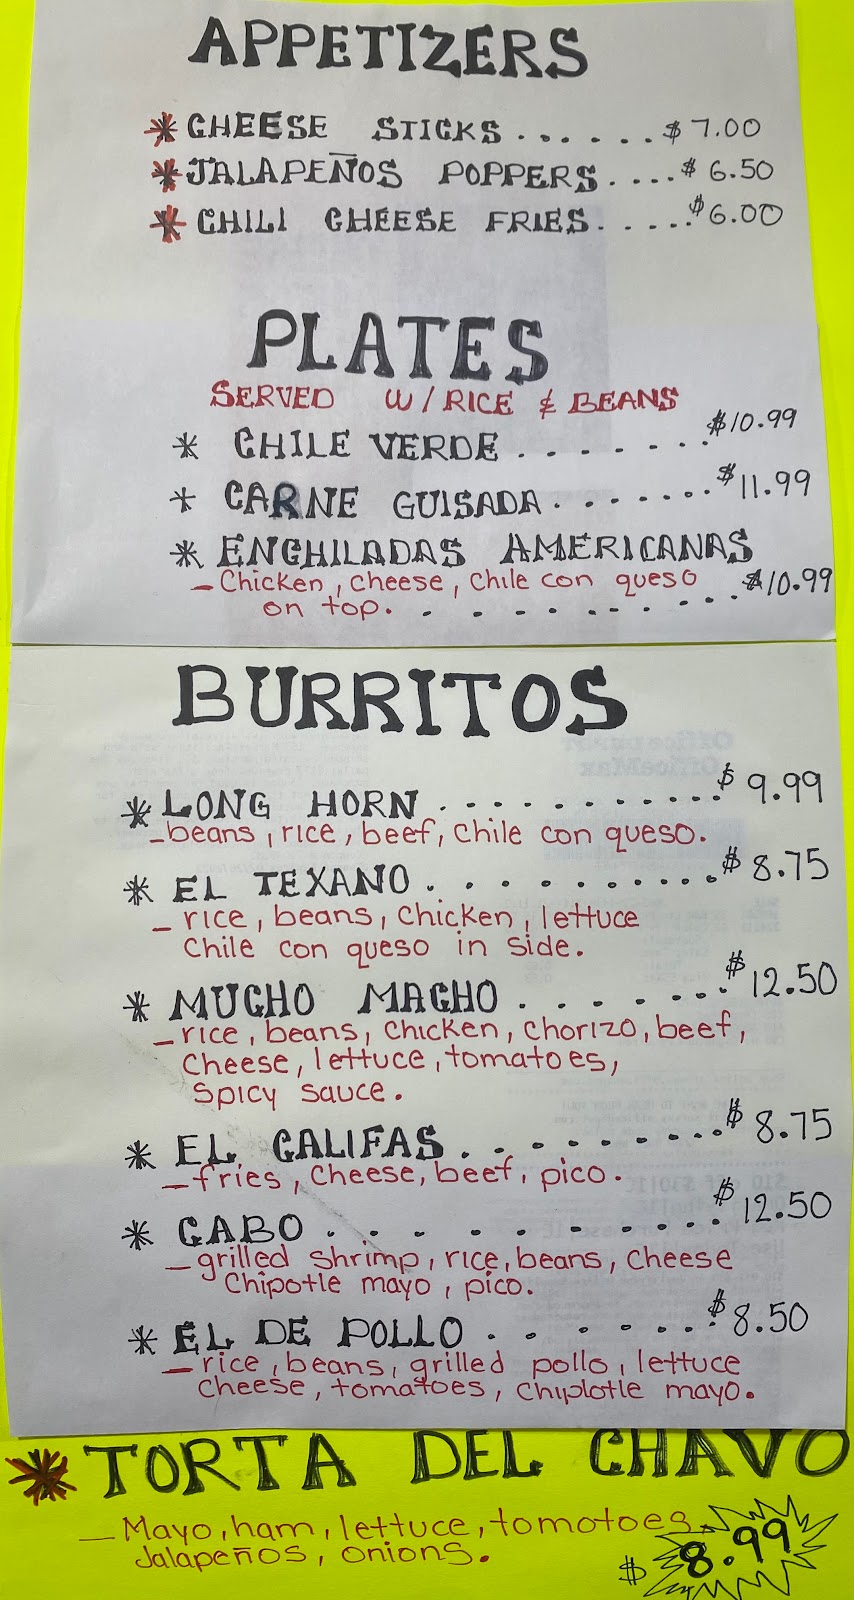 APPETIZERS
* CHEESE STICKS......$7.00
* JALAPEÑOS POPPERS.....$6.50
* CHILI CHEESE FRIES.....$6.00
PLATES
SERVED W/RICE & BEANS
* CHILE VERDE........$10.99
* CARNE GUISADA.......$11.99
* ENCHILADAS AMERICANAS
- Chicken, cheese, chile con queso $10.99
on top..........
BURRITOS
* LONG HORN...........$9.99
- beans, rice, beef, chile con queso.
* EL TEXANO..........$8.75
- rice, beans, chicken, lettuce
chile con queso in side.
* MUCHO MACHO.......$12.50
- rice, beans, chicken, chorizo, beef,
cheese, lettuce, tomatoes,
spicy sauce.
* EL CALIFAS.........$8.75
- fries, cheese, beef, pico.
* CABO...........$12.50
- grilled shrimp, rice, beans, cheese
chipotle mayo, pico.
* EL DE POLLO........$8.50
- rice, beans, grilled pollo, lettuce
cheese, tomatoes, chiplotle mayo.
* TORTA DEL CHAVO
- Mayo, ham, lettuce, tomotoes,
Jalapeños, onions. $8.99